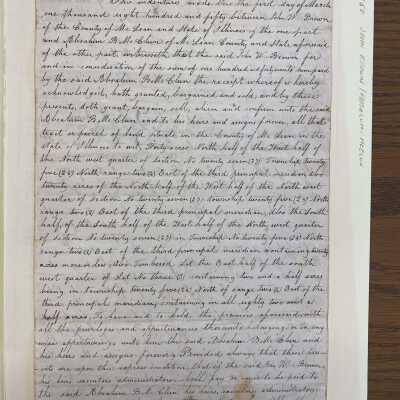 This indenture made this the first day of March
one thousand eight hundred and fifty between John W. Brown
of the County of Mc Lean and State of Illinois of the one part
and Abraham B. Mc Clun of Mc Lean County and State aforesaid
of the other part, witnesseth that the said John W. Brown for
and in consideration of the sum of one hundred and fifty in hand paid
by the said Abraham B. Mc Clun the receipt whereof is hereby
acknowledged, hath granted, bargained and sold, and by these
presents, doth grant, bargain, sell, alien and confirm unto the said
Abraham B. Mc Clun and to his heirs and assigns forever, all that
tract or parcel of land situate in the County of Mc Lean in the
State of Illinois to wit, Forty acres North half of the West half of
the North west quarter of Section No twenty seven (27) Township twenty
five (25) North range two (2) East of the third principal meridian also
twenty acres of the North half of the West half of the North west
quarter of Section No twenty seven (27) Township twenty five (25) North
range two (2) East of the third principal meridian, also the South
half, of the South half of the West half of the North west quarter
of Section No twenty seven (27) in Township No twenty five (25) North
range two (2) East of the third principal meridian containing twenty
acres more or less also numbered Lot the East half of the south
west quarter of Lot No three (3) containing two and a half acres
being in Township twenty five (25) North of range two (2) East of the
third principal meridian, containing in all eighty two and a
half acres. To have and to hold the premises aforesaid with
all the privileges and appurtenances thereunto belonging or in any
wise appertaining unto him the said Abraham B. Mc Clun and
his heirs and assigns forever, Provided always that these
are upon this express condition that if the said John W. Brown,
his heirs executors administrators shall pay or cause to be paid to
the said Abraham B. Mc Clun his heirs, executors, administrators